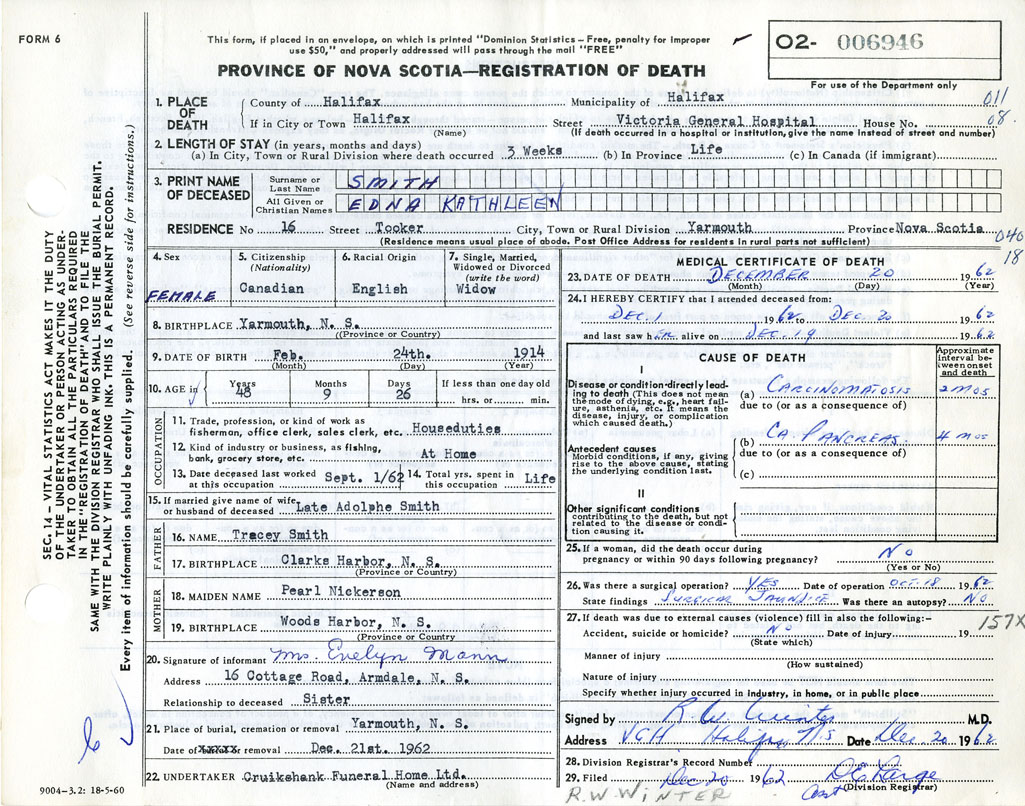 FORM 6
This form, if placed in an envelope, on which is printed "Dominion Statistics – Free, penalty for improper
use $50," and properly addressed will pass through the mail "FREE"
O2- 006946
PROVINCE OF NOVA SCOTIA—REGISTRATION OF DEATH
For use of the Department only
011
08
1. PLACE OF DEATH
County of Halifax Municipality of Halifax
If in City or Town Halifax Street Victoria General Hospital House No.
(Name) (If death occurred in a hospital or institution, give the name instead of street and number)
2. LENGTH OF STAY (in years, months and days)
(a) In City, Town or Rural Division where death occurred 3 Weeks (b) In Province Life (c) In Canada (if immigrant)
3. PRINT NAME OF DECEASED
Surname or Last Name SMITH
All Given or Christian Names EDNA KATHLEEN
RESIDENCE No 16 Street Tooker City, Town or Rural Division Yarmouth Province Nova Scotia
(Residence means usual place of abode. Post Office Address for residents in rural parts not sufficient)
040
18
4. Sex
FEMALE
5. Citizenship
(Nationality)
Canadian
6. Racial Origin
English
7. Single, Married,
Widowed or Divorced
(write the word)
Widow
8. BIRTHPLACE Yarmouth, N. S.
((Province or Country)
9. DATE OF BIRTH Feb. 24th. 1914
(Month) (Day) (Year)
10. AGE
Years Months Days If less than one day old
48 9 26 hrs. or min.
OCCUPATION
11. Trade, profession, or kind of work as
fisherman, office clerk, sales clerk, etc. Houseduties
12. Kind of industry or business, as fishing,
bank, grocery store, etc. At Home
13. Date deceased last worked
at this occupation Sept. 1/62
14. Total yrs. spent in
this occupation Life
15. If married give name of wife
or husband of deceased Late Adolphe Smith
FATHER
16. NAME Tracey Smith
17. BIRTHPLACE Clarks Harbor, N. S.
(Province or Country)
MOTHER
18. MAIDEN NAME Pearl Nickerson
19. BIRTHPLACE Woods Harbor, N. S.
(Province or Country
20. Signature of informant Mrs. Evelyn Mann
Address 16 Cottage Road, Armdale, N. S.
Relationship to deceased Sister
21. Place of burial, cremation or removal Yarmouth, N. S.
Date of xxxxx removal Dec. 21st. 1962
22. UNDERTAKER Cruikshank Funeral Home Ltd.
(Name and address)
MEDICAL CERTIFICATE OF DEATH
23. DATE OF DEATH DECEMBER 20 1962
(Month) (Day) (Year)
24. I HEREBY CERTIFY that I attended deceased from:
DEC. 1 1962 to DEC. 20 1962
and last saw her alive on DEC. 19 1962
CAUSE OF DEATH
Approximate
interval be-
tween onset
and death
I
Disease or condition directly lead-
ing to death (This does not mean
the mode of dying, e.g., heart fail-
ure, asthenia, etc. It means the
disease, injury, or complication
which caused death.)
(a) CARCINOMATOSIS 2 MOS
due to (or as a consequence of)
Antecedent causes
Morbid conditions, if any, giving
rise to the above cause, stating
the underlying condition last.
(b) CA. PANCREAS. 4 MOS
due to (or as a consequence of)
(c)
II
Other significant conditions
contributing to the death, but not
related to the disease or condi-
tion causing it.
25. If a woman, did the death occur during
pregnancy or within 90 days following pregnancy? NO
(Yes or No)
26. Was there a surgical operation? YES Date of operation OCT. 18 1962
State findings SURGICAL JAUNDICE Was there an autopsy? NO
27. If death was due to external causes (violence) fill in also the following:–
157X
Accident, suicide or homicide? NO Date of injury 19
(State which)
Manner of injury
(How sustained)
Nature of injury
Specify whether injury occurred in industry, in home, or in public place
Signed by R W Winter M.D.
Address VGH Halifax NS Date Dec 20 1962
28. Division Registrar's Record Number
29. Filed Dec 20 1962 D E Large
Asst (Division Registrar)
R.W. WINTER
SEC. 14 – VITAL STATISTICS ACT MAKES IT THE DUTY
OF THE UNDERTAKER OR PERSON ACTING AS UNDER-
TAKER TO OBTAIN ALL THE PARTICULARS REQUIRED
IN THE "REGISTRATION OF DEATH" AND TO FILE THE
SAME WITH THE DIVISION REGISTRAR WHO SHALL ISSUE THE BURIAL PERMIT.
WRITE PLAINLY WITH UNFADING INK. THIS IS A PERMANENT RECORD.
Every item of information should be carefully supplied. (See reverse side for instructions.)
9004-3.2: 18-5-60